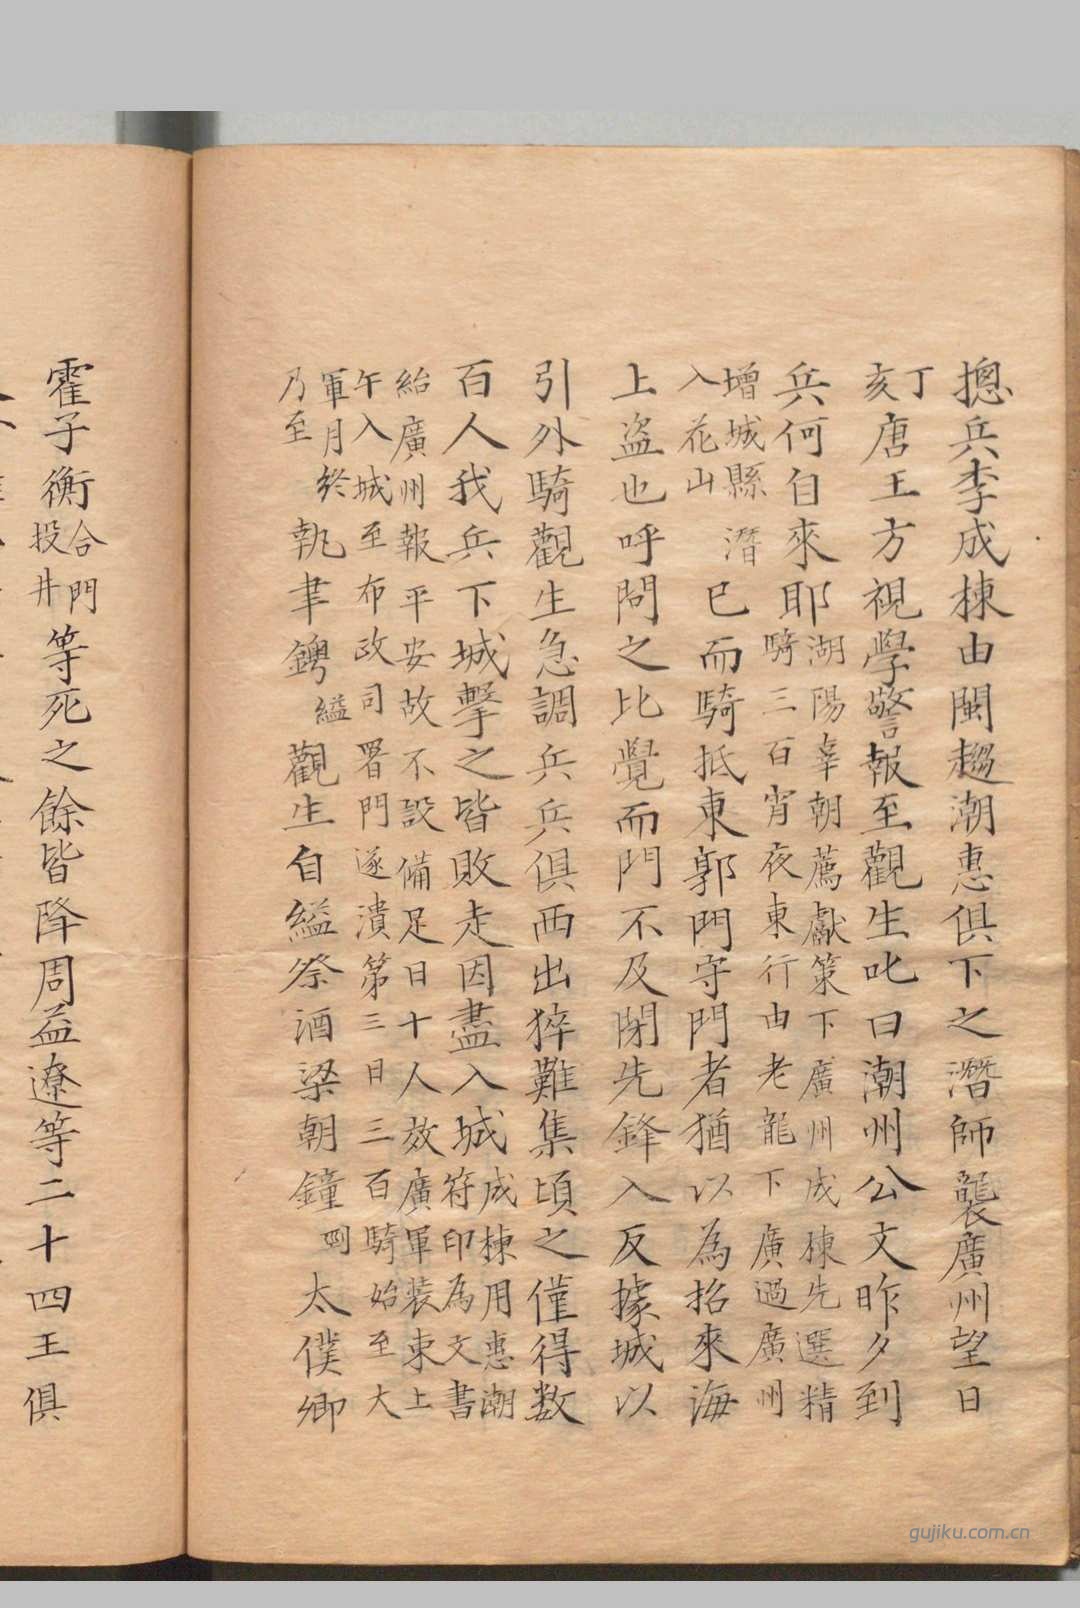 摠兵李成棟由閩趨潮惠俱下之潛師襲廣州望日
丁亥唐王方視學警報至觀生叱曰潮州公文昨夕到
兵何自來耶湖陽辜朝薦獻策下廣州成棟先選精騎三百宵夜東行由老龍下廣過廣州
增城縣潛入花山已而騎抵東郭門守門者猶以為招來海
上盜也呼問之比覺而門不及閉先鋒入反據城以
引外騎觀生急調兵兵俱西出猝難集頃之僅得数
百人我兵下城擊之皆敗走因盡入城成棟用惠潮符印為文書
紿廣州報平安故不設備足日十人故廣軍装東上午入城至布政司署門遂潰第三日三百騎始至大
軍月終乃至執聿鍔縊觀生自縊祭酒梁朝鐘刎太僕卿
霍子衡合門投井等死之餘皆降周益遼等二十四王俱
gujiku.com.cn